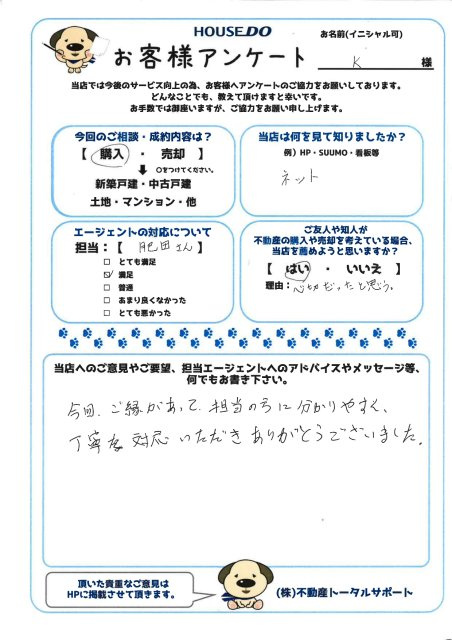 HOUSEDO
お客様アンケート
お名前(イニシャル可)
K 様
当店では今後のサービス向上の為、お客様へアンケートのご協力をお願いしております。
どんなことでも、教えて頂けますと幸いです。
お手数では御座いますが、ご協力をお願い申し上げます。
今回のご相談・成約内容は？
【 購入 ・ 売却 】
○をつけてください。
新築戸建・中古戸建
土地・マンション・他
当店は何を見て知りましたか？
例）HP・SUUMO・看板等
ネット
エージェントの対応について
担当：【 肥田さん 】
□ とても満足
☑ 満足
□ 普通
□ あまり良くなかった
□ とても悪かった
ご友人や知人が
不動産の購入や売却を考えている場合、
当店を薦めようと思いますか？
【 はい ・ いいえ 】
理由：心切だったと思う。
当店へのご意見やご要望、担当エージェントへのアドバイスやメッセージ等、
何でもお書き下さい。
今回、ご縁があって、担当の方に分かりやすく、
丁寧な対応いただきありがとうございました。
頂いた貴重なご意見は
HPに掲載させて頂きます。
(株)不動産トータルサポート